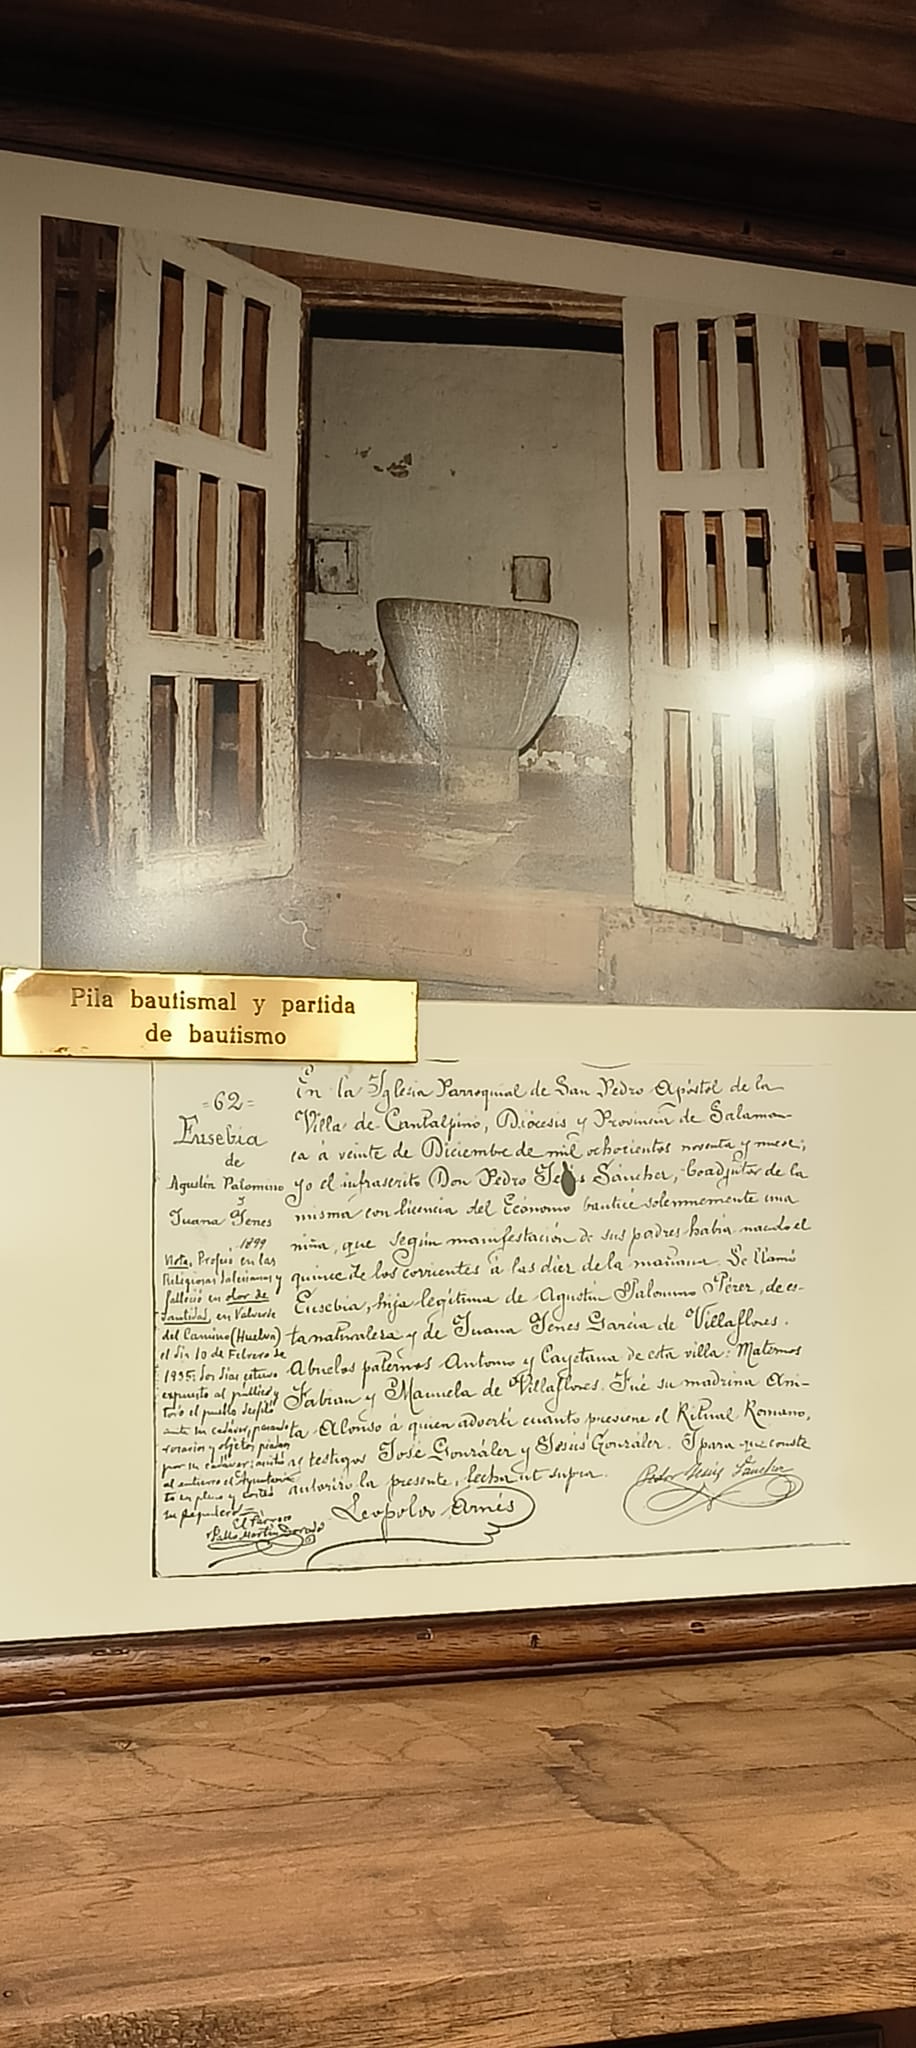 Pila bautismal y partida
de bautismo
=62=
Eusebia
de
Agustín Palomino
y
Juana Yenes
1899
Nota. Profesó en las
Religiosas Salesianas y
falleció en olor de
santidad, en Valverde
del Camino (Huelva)
el día 10 de Febrero de
1935: dos días estuvo
expuesto al público y
todo el pueblo desfiló
ante su cadáver, pasando
rosarios y objetos piadosos
por su cadáver; asistió
al entierro el Ayuntamien
to en pleno y costeó
su sepultura
El Párroco
Pablo Martín Dorado
En la Iglesia Parroquial de San Pedro Apóstol de la
Villa de Cantalpino, Diócesis y Provincia de Salaman-
ca á veinte de Diciembre de mil ochocientos noventa y nueve;
yo el infrascrito Don Pedro Jesús Sánchez, Coadjutor de la
misma con licencia del Ecónomo bauticé solemnemente una
niña, que según manifestación de sus padres había nacido el
quince de los corrientes á las diez de la mañana. Se llamó
Eusebia, hija legítima de Agustín Palomino Pérez, de es-
ta naturaleza y de Juana Yenes García de Villaflores.
Abuelos paternos Antonio y Cayetana de esta villa: Maternos
Fabian y Manuela de Villaflores. Fué su madrina Ani-
ta Alonso á quien advertí cuanto previene el Ritual Romano,
y testigos José González y Jesús González. I para que conste
autorizo la presente, fecha ut supra.
Pedro Jesús Sánchez
Leopoldo Arnés